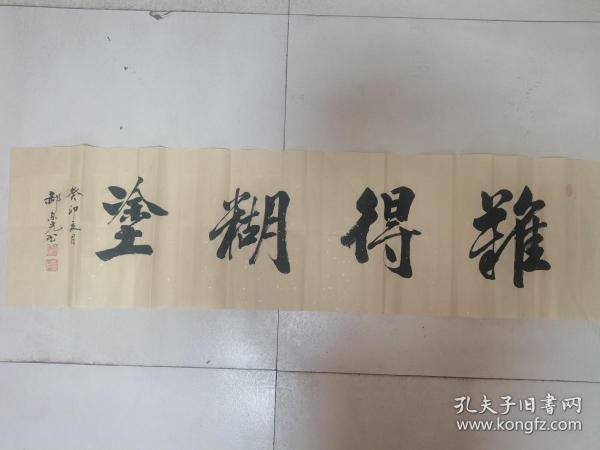 難得糊塗
癸卯夏月
郝東光书
孔夫子旧書网
www.kongfz.com